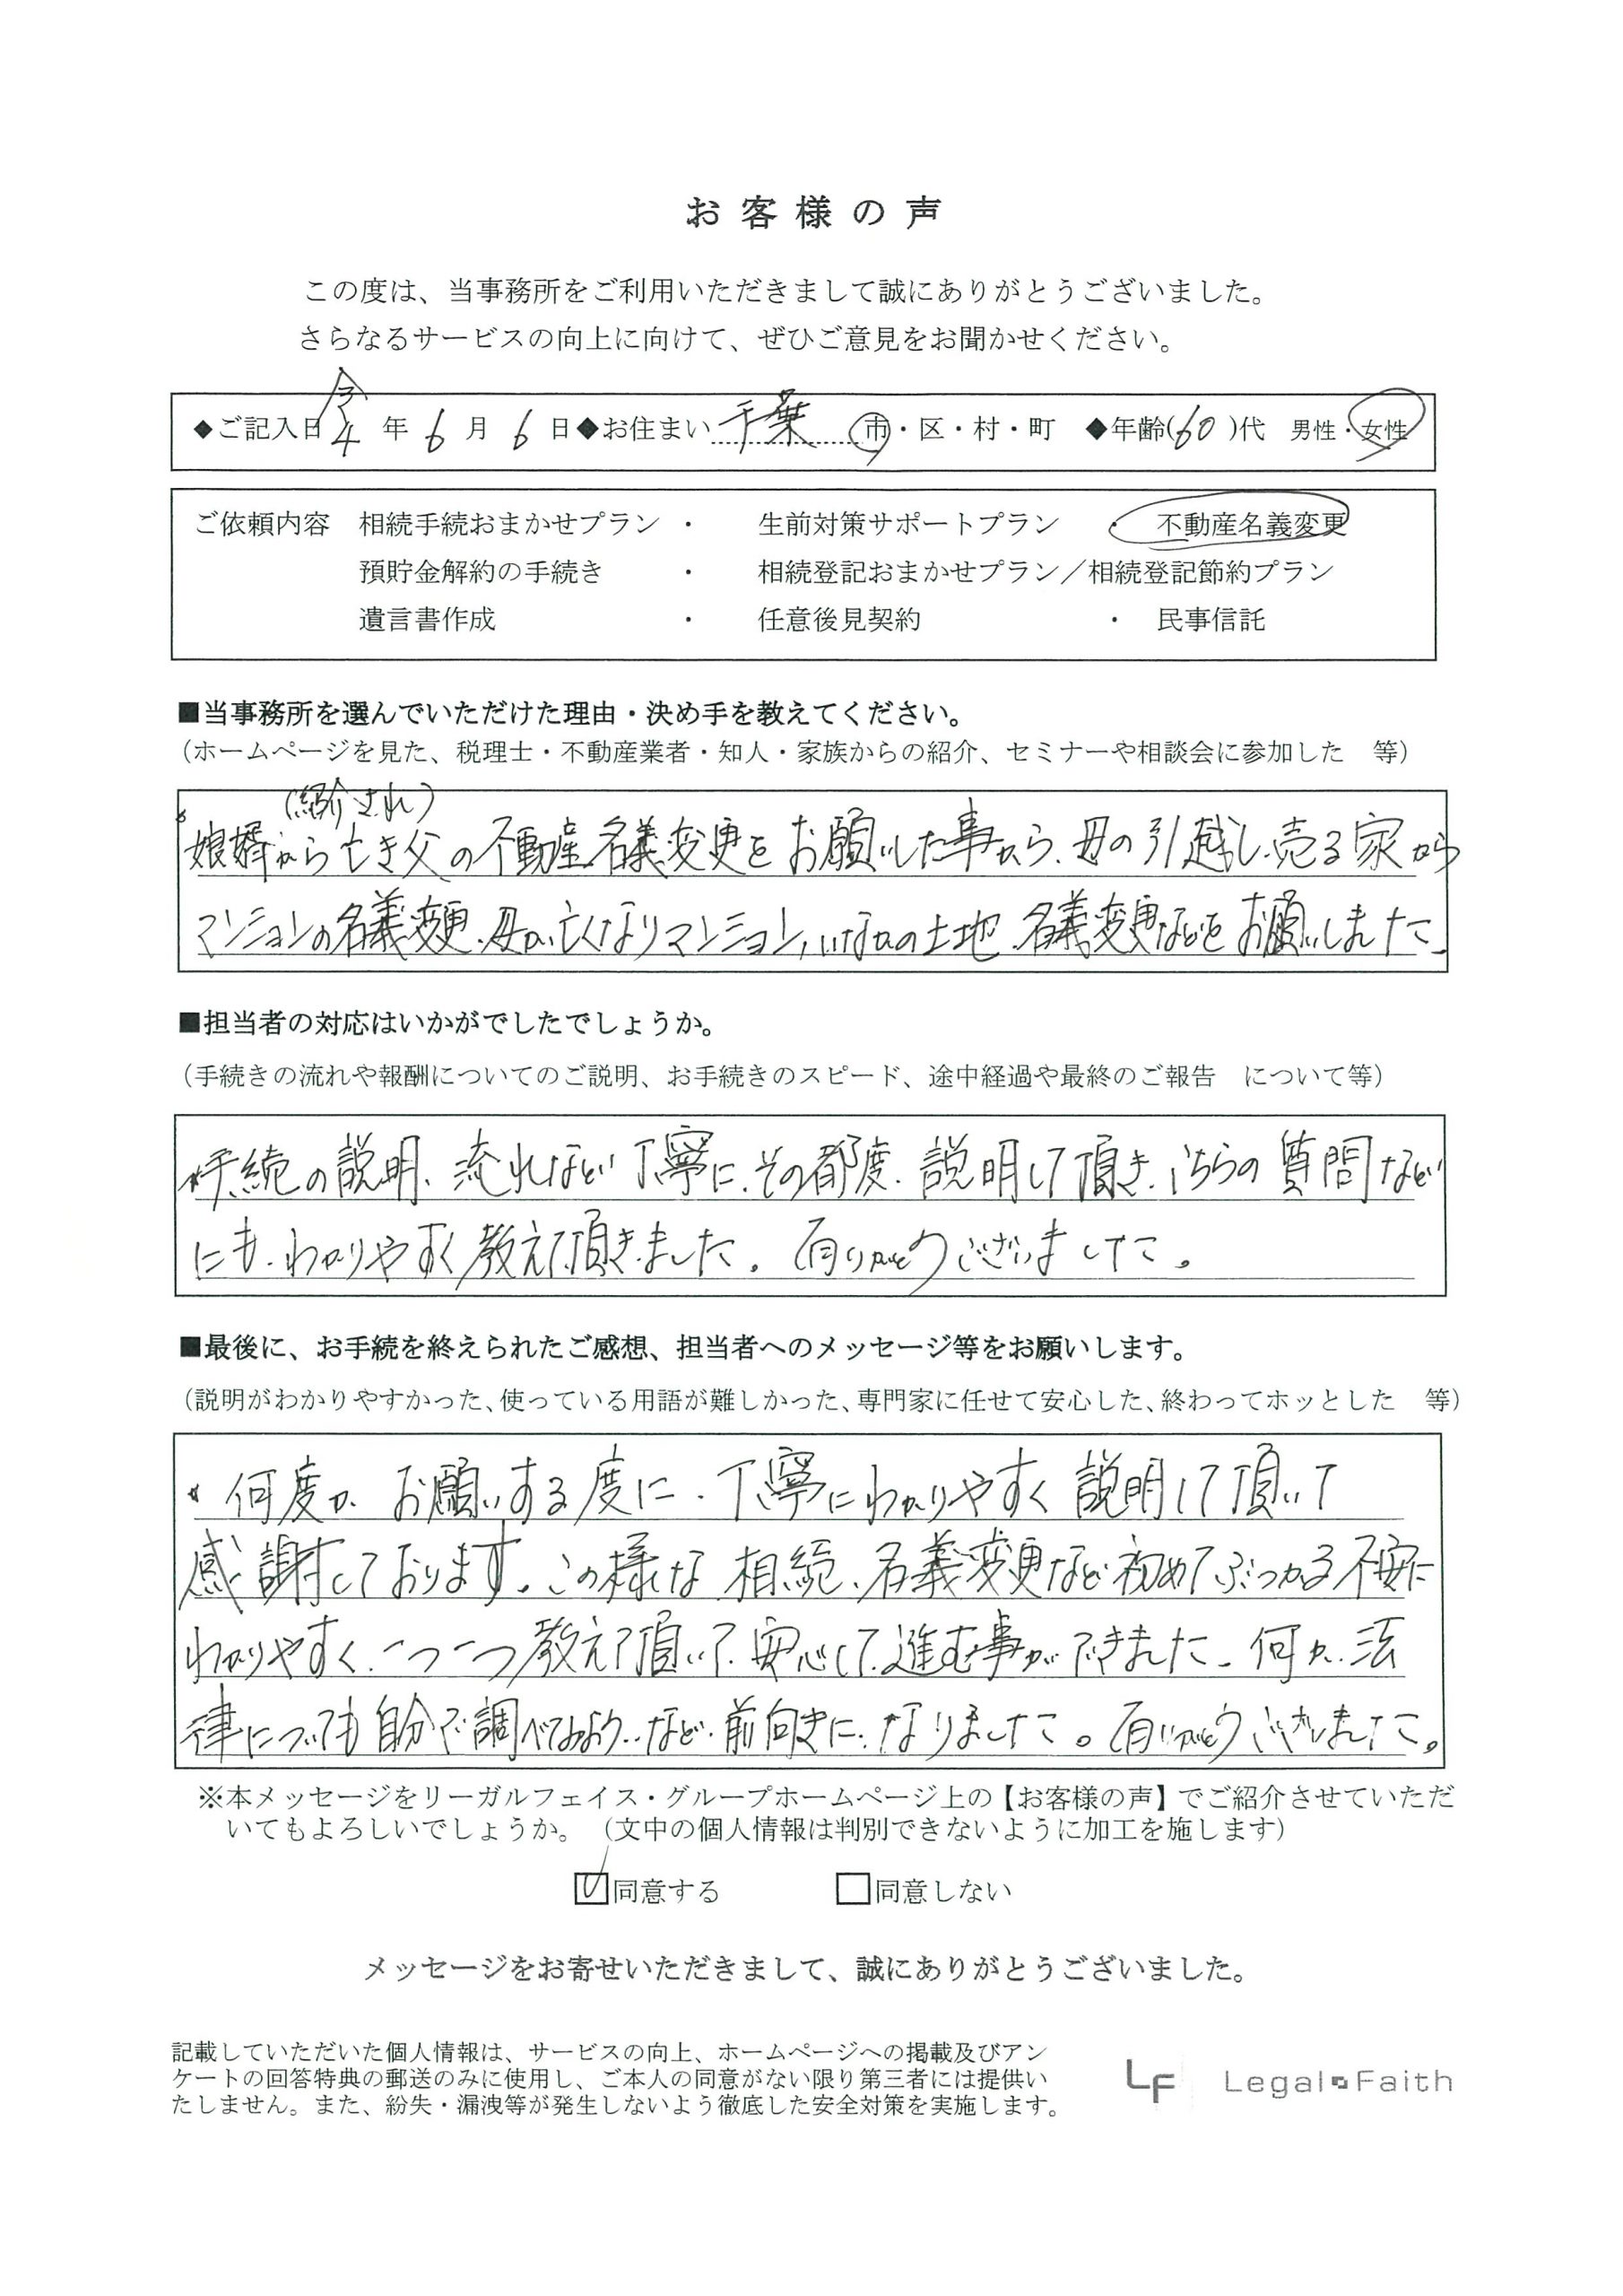 お客様の声
この度は、当事務所をご利用いただきまして誠にありがとうございました。
さらなるサービスの向上に向けて、ぜひご意見をお聞かせください。
◆ご記入日 令4 年 6 月 6 日◆お住まい 千葉 市・区・村・町 ◆年齢(60)代 男性・女性
ご依頼内容 相続手続おまかせプラン ・ 生前対策サポートプラン ・ 不動産名義変更
預貯金解約の手続き ・ 相続登記おまかせプラン／相続登記節約プラン
遺言書作成 ・ 任意後見契約 ・ 民事信託
■当事務所を選んでいただけた理由・決め手を教えてください。
（ホームページを見た、税理士・不動産業者・知人・家族からの紹介、セミナーや相談会に参加した 等）
（紹介され）
娘婿から亡き父の不動産名義変更をお願いした事から、母の引越し、売る家から
マンションの名義変更、母が亡くなりマンション、いなかの土地、名義変更などをお願いしました。
■担当者の対応はいかがでしたでしょうか。
（手続きの流れや報酬についてのご説明、お手続きのスピード、途中経過や最終のご報告 について等）
手続の説明、流れなど丁寧に、その都度、説明して頂き、こちらの質問など
にも、わかりやすく教えて頂きました。有りがとうございました。
■最後に、お手続を終えられたご感想、担当者へのメッセージ等をお願いします。
（説明がわかりやすかった、使っている用語が難しかった、専門家に任せて安心した、終わってホッとした 等）
・何度か、お願いする度に、丁寧にわかりやすく説明して頂いて
感謝しております。この様な相続、名義変更など初めてぶつかる不安に
わかりやすく、一つ一つ教えて頂いて、安心して、進む事ができました。何か、法
律についても自分で調べてみよう‥など、前向きに、なりました。有りがとうございました。
※本メッセージをリーガルフェイス・グループホームページ上の【お客様の声】でご紹介させていただ
いてもよろしいでしょうか。（文中の個人情報は判別できないように加工を施します）
☑同意する □同意しない
メッセージをお寄せいただきまして、誠にありがとうございました。
記載していただいた個人情報は、サービスの向上、ホームページへの掲載及びアン
ケートの回答特典の郵送のみに使用し、ご本人の同意がない限り第三者には提供い
たしません。また、紛失・漏洩等が発生しないよう徹底した安全対策を実施します。
LF Legal Faith